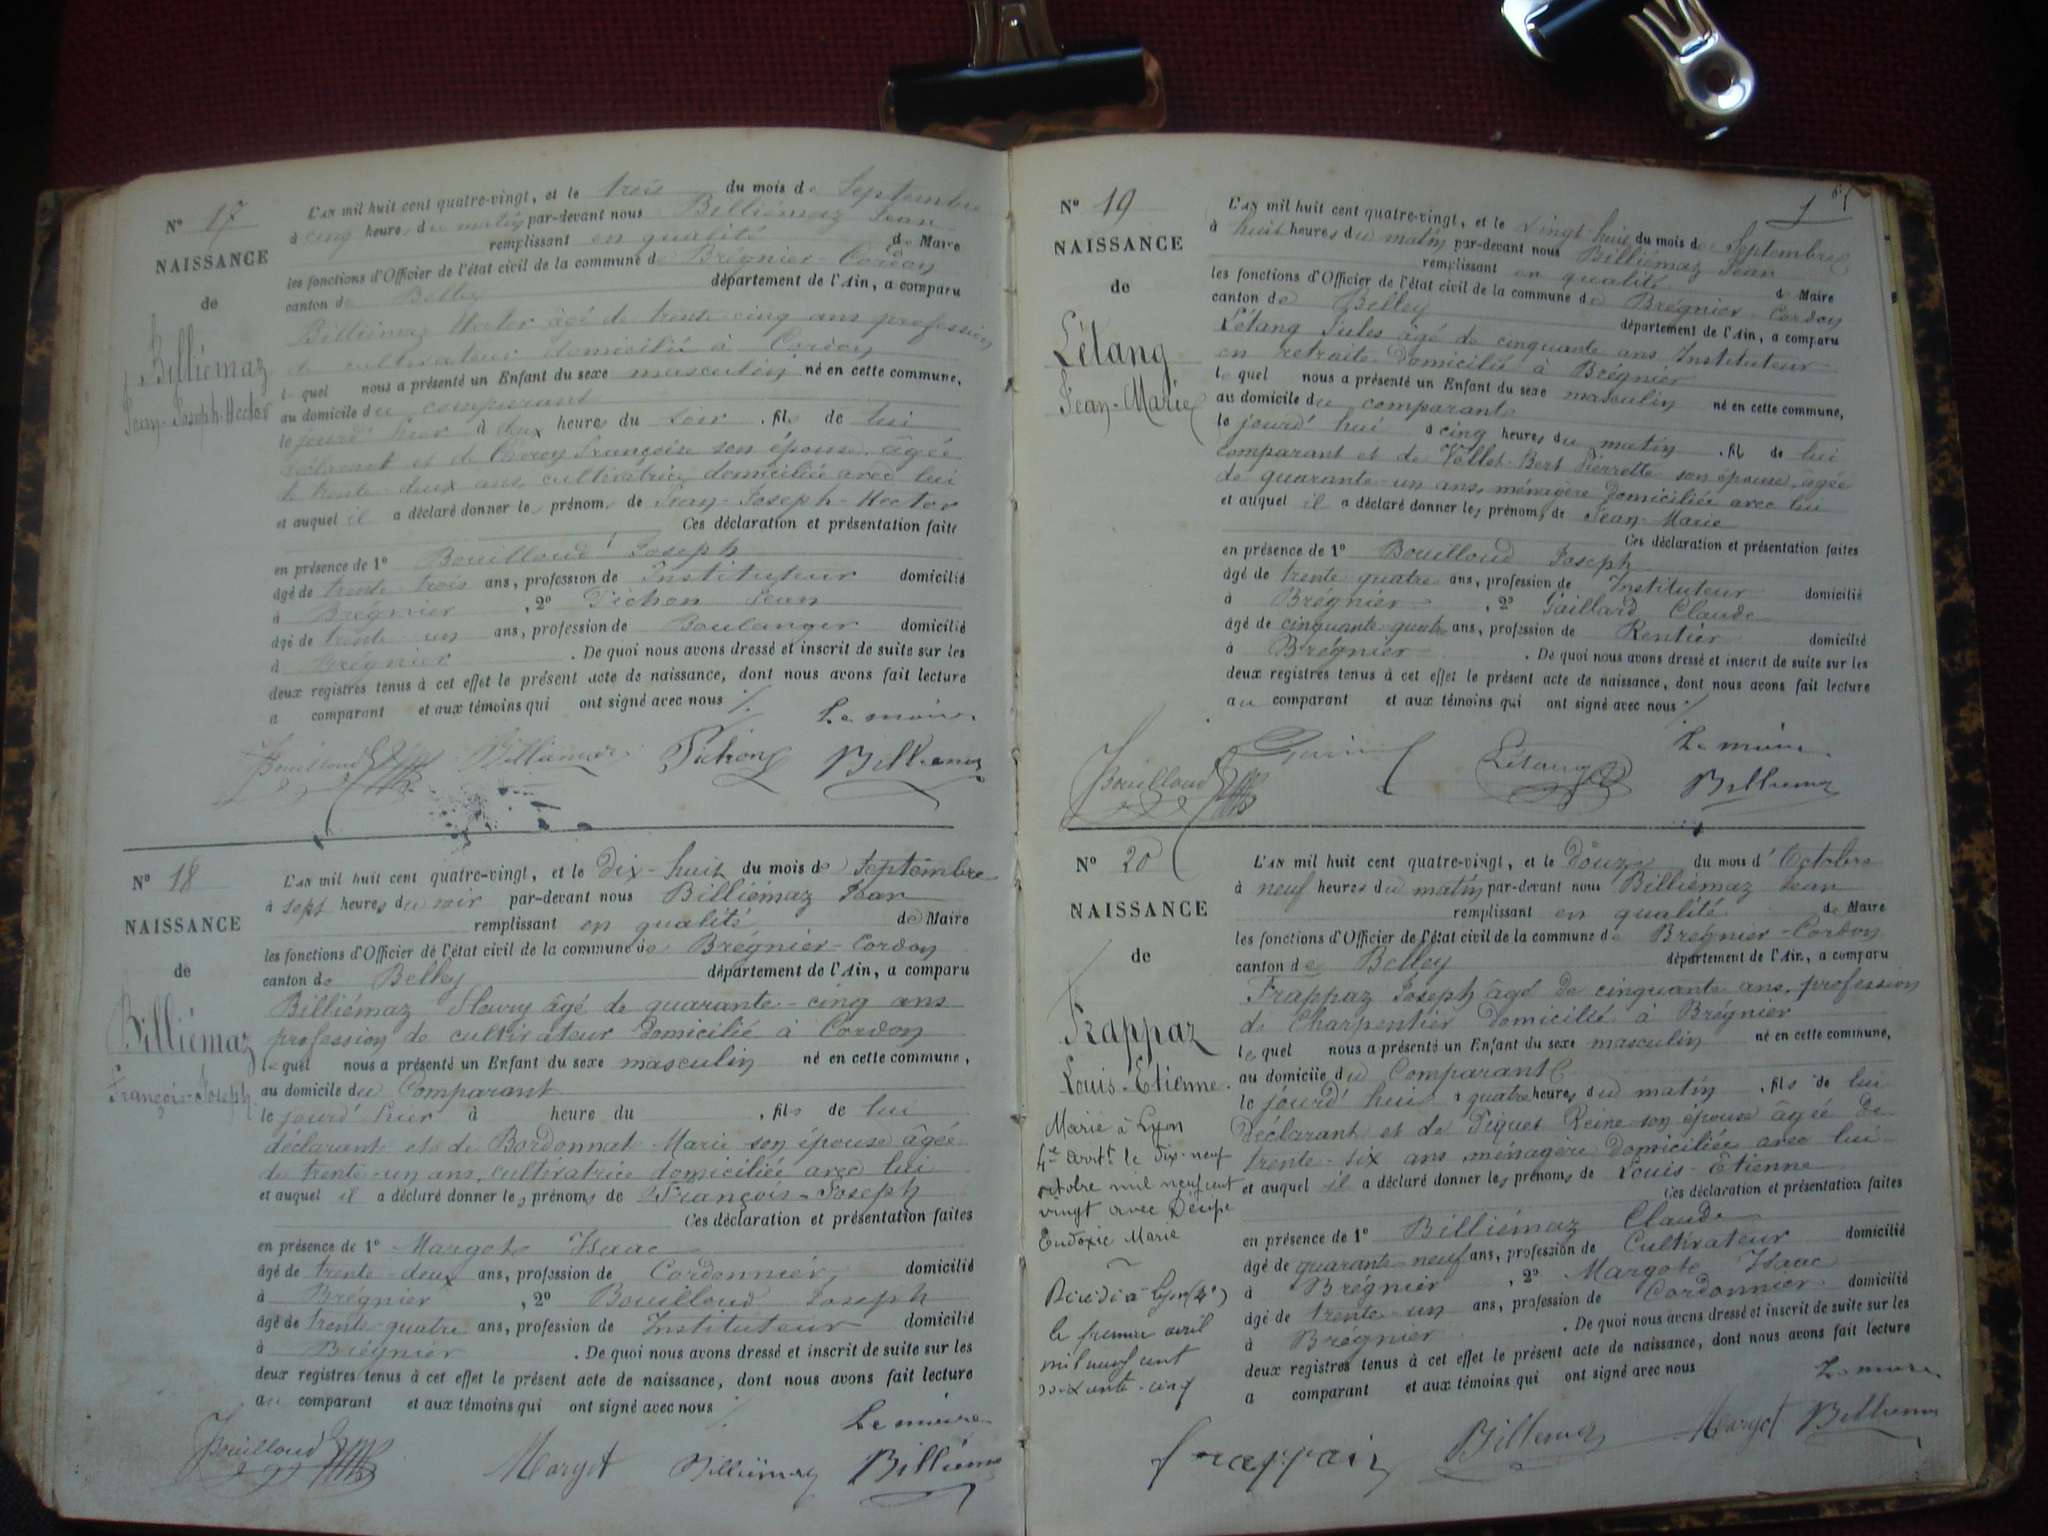 N° 17
NAISSANCE
de
Billiémaz
Jean-Joseph-Hector
L'AN mil huit cent quatre-vingt, et le trois du mois de Septembre
à cinq heures du matin par-devant nous Billiémaz Jean
remplissant en qualité de Maire
les fonctions d'Officier de l'état civil de la commune de Brégnier-Cordon
canton de Belley département de l'Ain, a comparu
Billiémaz Hector âgé de trente-cinq ans profession
de cultivateur domicilié à Cordon
lequel nous a présenté un Enfant du sexe masculin né en cette commune,
au domicile du comparant
le jourd' hier à deux heures du soir, fils de lui
déclarant et de Françoise son épouse âgée
de trente-deux ans, cultivatrice, domiciliée avec lui
et auquel il a déclaré donner les prénoms de Jean-Joseph-Hector
Ces déclaration et présentation faites
en présence de 1° Bouilloud Joseph
âgé de trente trois ans, profession de Instituteur domicilié
à Brégnier, 2° Pichon Jean
âgé de trente-un ans, profession de Boulanger domicilié
à Brégnier. De quoi nous avons dressé et inscrit de suite sur les
deux registres tenus à cet effet le présent acte de naissance, dont nous avons fait lecture
a comparant et aux témoins qui ont signé avec nous
Le maire
Bouilloud Billiémaz Pichon Billiémaz
N° 18
NAISSANCE
de
Billiémaz
François-Joseph
L'AN mil huit cent quatre-vingt, et le dix-huit du mois de Septembre
à sept heures du soir par-devant nous Billiémaz Jean
remplissant en qualité de Maire
les fonctions d'Officier de l'état civil de la commune de Brégnier-Cordon
canton de Belley département de l'Ain, a comparu
Billiémaz Fleury âgé de quarante-cinq ans
profession de cultivateur domicilié à Cordon
lequel nous a présenté un Enfant du sexe masculin né en cette commune,
au domicile du Comparant
le jourd' hui à heure du , fils de lui
déclarant et de Bordonnat Marie son épouse âgée
de trente-un ans, cultivatrice domiciliée avec lui
et auquel il a déclaré donner les prénoms de François-Joseph
Ces déclaration et présentation faites
en présence de 1° Margot Isaac
âgé de trente-deux ans, profession de Cordonnier, domicilié
à Brégnier, 2° Bouilloud Joseph
âgé de trente-quatre ans, profession de Instituteur domicilié
à Brégnier. De quoi nous avons dressé et inscrit de suite sur les
deux registres tenus à cet effet le présent acte de naissance, dont nous avons fait lecture
au comparant et aux témoins qui ont signé avec nous
Le maire
Bouilloud Margot Billiémaz Billiémaz
N° 19
NAISSANCE
de
Létang
Jean-Marie
L'AN mil huit cent quatre-vingt, et le vingt-huit du mois de Septembre
à huit heures du matin par-devant nous Billiémaz Jean
remplissant en qualité de Maire
les fonctions d'Officier de l'état civil de la commune de Brégnier-Cordon
canton de Belley département de l'Ain, a comparu
Létang Jules âgé de cinquante ans Instituteur
en retraite domicilié à Brégnier
lequel nous a présenté un Enfant du sexe masculin né en cette commune,
au domicile du comparant
le jourd' hui à cinq heures du matin, fils de lui
comparant et de Vollet-Bert Pierrette son épouse, âgée
de quarante-un ans, ménagère domiciliée avec lui
et auquel il a déclaré donner les prénoms de Jean-Marie
Ces déclaration et présentation faites
en présence de 1° Bouilloud Joseph
âgé de trente quatre ans, profession de Instituteur domicilié
à Brégnier, 2° Gaillard Claude
âgé de cinquante quatre ans, profession de Rentier domicilié
à Brégnier. De quoi nous avons dressé et inscrit de suite sur les
deux registres tenus à cet effet le présent acte de naissance, dont nous avons fait lecture
au comparant et aux témoins qui ont signé avec nous
Le maire
Bouilloud Létang Billiémaz
N° 20
NAISSANCE
de
Frappaz
Louis-Etienne.
Marié à Lyon
4e arrt. le dix-neuf
octobre mil neuf cent
vingt avec
Eudoxie Marie
Décédé à Lyon (4e)
le premier avril
mil neuf cent
soixante-cinq
L'AN mil huit cent quatre-vingt, et le douze du mois d'Octobre
à neuf heures du matin par-devant nous Billiémaz Jean
remplissant en qualité de Maire
les fonctions d'Officier de l'état civil de la commune de Brégnier-Cordon
canton de Belley département de l'Ain, a comparu
Frappaz Joseph âgé de cinquante ans, profession
de Charpentier domicilié à Brégnier
lequel nous a présenté un Enfant du sexe masculin né en cette commune,
au domicile du Comparant
le jourd' hui à quatre heures du matin, fils de lui
déclarant et de Piquet Reine son épouse âgée de
trente-six ans ménagère domiciliée avec lui
et auquel il a déclaré donner les prénoms de Louis-Etienne
Ces déclaration et présentation faites
en présence de 1° Billiémaz Claude
âgé de quarante-neuf ans, profession de Cultivateur domicilié
à Brégnier, 2° Margot Isaac
âgé de trente un ans, profession de Cordonnier domicilié
à Brégnier. De quoi nous avons dressé et inscrit de suite sur les
deux registres tenus à cet effet le présent acte de naissance, dont nous avons fait lecture
a comparant et aux témoins qui ont signé avec nous
Le maire
frappaz Billiémaz Margot Billiémaz